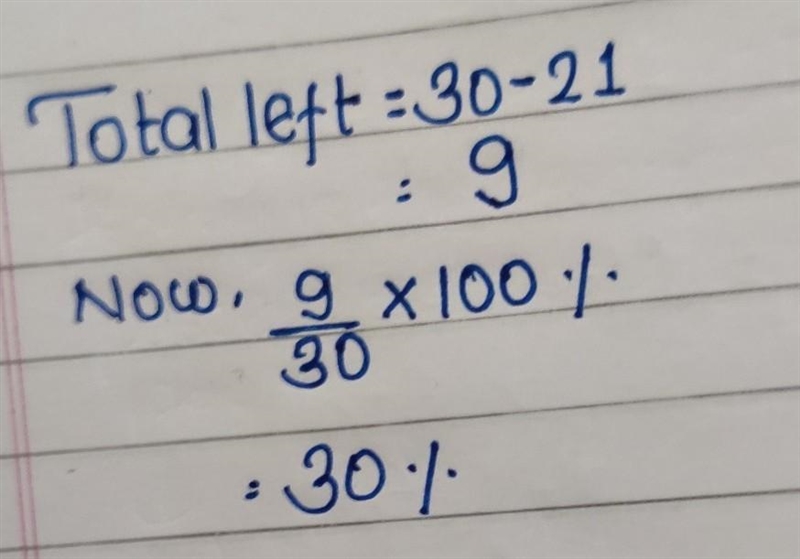 Total left = 30-21
= 9
Now, 9/30 × 100 %
= 30 %